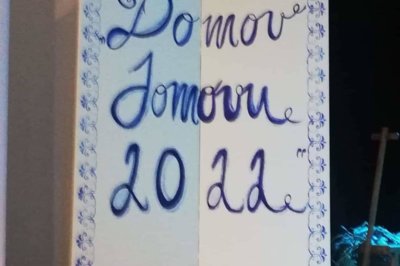 „Domov
Jomovu
2022“